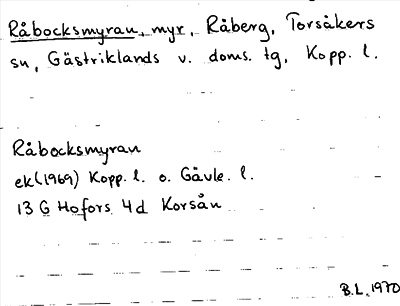 Råbocksmyran, myr, Råberg, Torsåkers
sn, Gästriklands v. doms. tg, Kopp. l.
Råbocksmyran
ek(1969) Kopp. l. o. Gävle. l.
13 G Hofors 4d Korsån
B.L. 1970